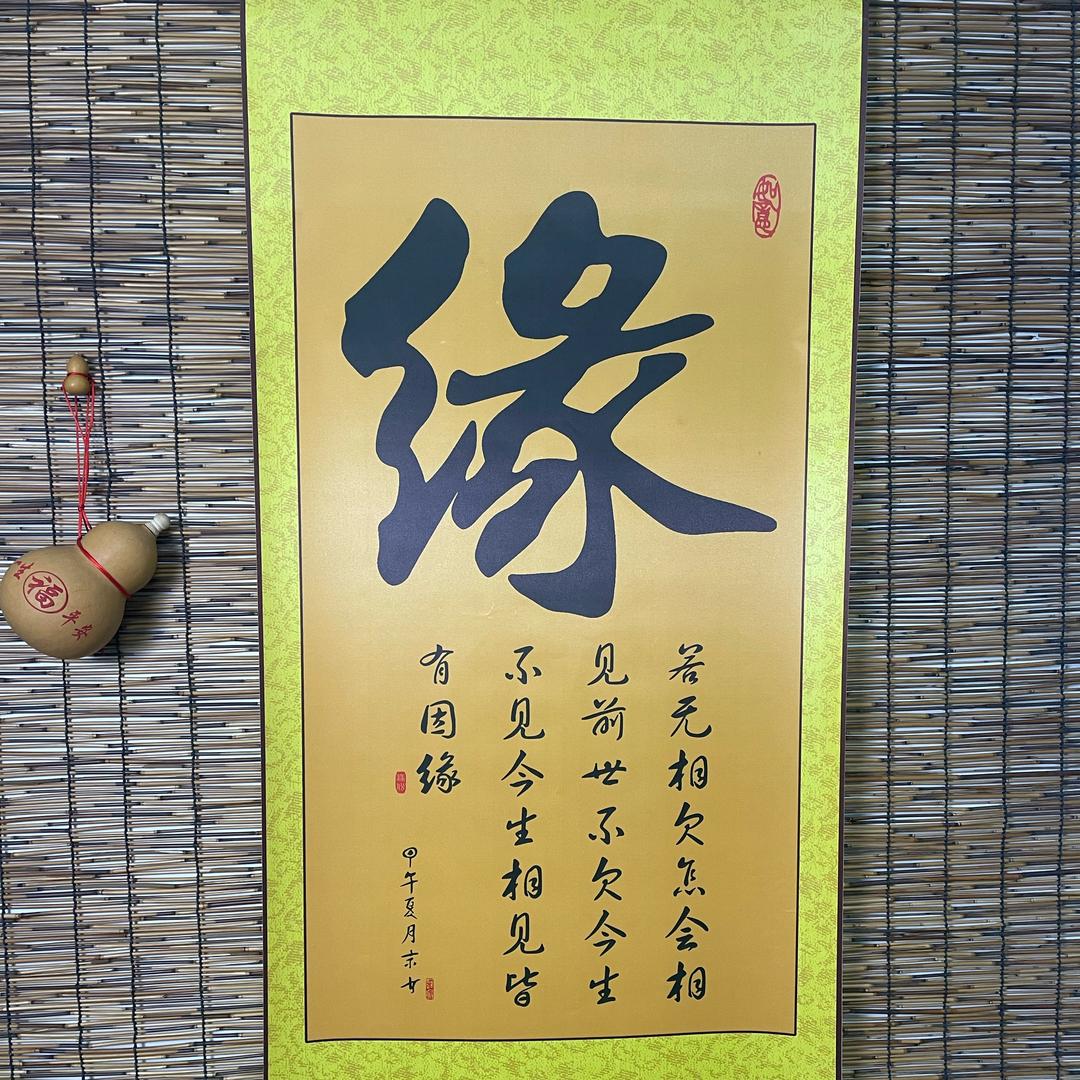 缘
如意
若无相欠怎会相
见前世不欠今生
不见今生相见皆
有因缘
甲午夏月
福
平安